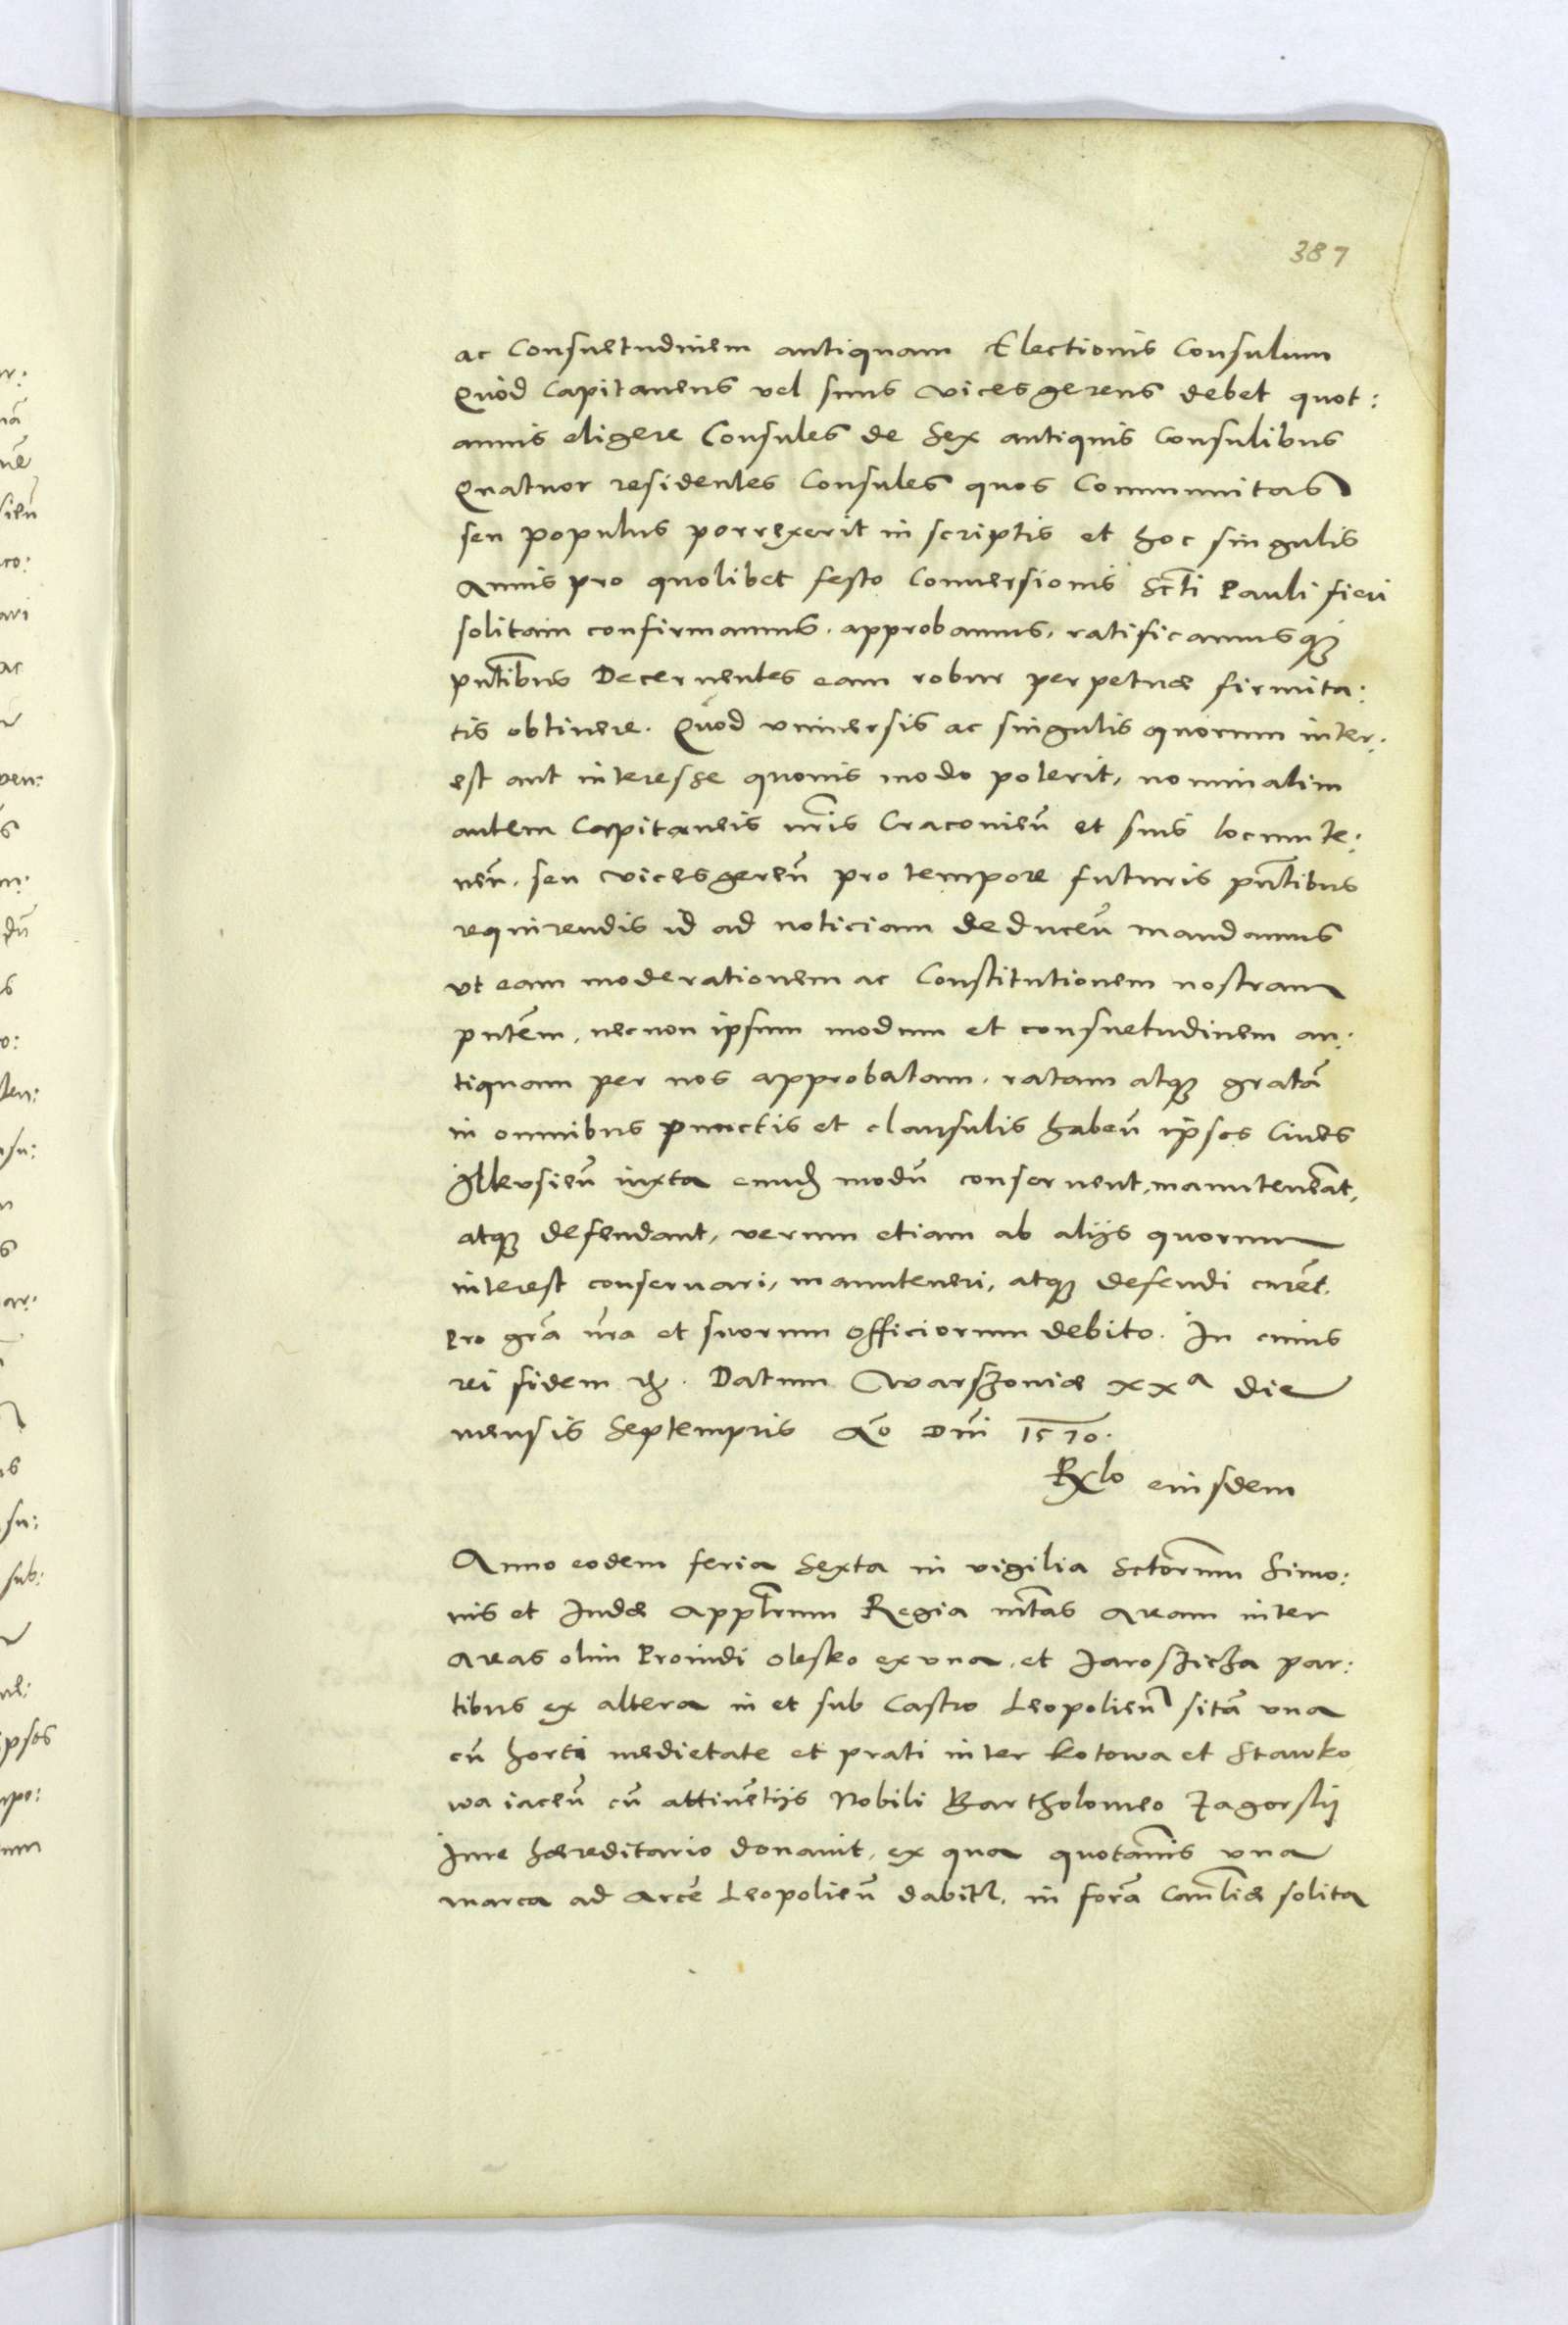 387
ac Consuetudinem antiquam Electionis Consulum
Quòd Capitaneus vel suus vicesgerens debet quot:
annis eligere Consules de Sex antiquis Consulibus
Quatuor residentes Consules quos Communitas
seu populus porrexerit in scriptis et hoc singulis
Annis pro quolibet festo Conuersionis Scti Pauli fieri
solitam confirmamus. approbamus, ratificamusque
pntibus Decernentes eam robur perpetuae firmita:
tis obtinere. Quòd vniuersis ac singulis quorum inter:
est aut interesse quouis modo poterit, nominatim
autem Capitaneis nris Cracouien̄ et suis locumte:
nen̄. seu vicesgeren̄ pro tempore futuris pntibus
requirendis id ad noticiam deducen̄ mandamus
vt eam moderationem ac Constitutionem nostram
pntem, necnon ipsum modum et consuetudinem an:
tiquam per nos approbatam. ratam atque gratā
in omnibus punctis et clausulis haben̄ ipsos Ciues
Ilkusien̄ iuxta eund modū conseruent, manuteneāt,
atque defendant, verum etiam ab alijs quorum
interest conseruari, manuteneri, atque defendi curēt.
Pro gra nra et suorum Officiorum debito. In cuius
rei fidem etc. Datum Warszouiae xxa die
mensis Septempris Ao Dni 1570.
Rlo eiusdem
Anno eodem feria Sexta in vigilia Sctorum Simo:
nis et Judae Appltrum Regia mtas Aream inter
Areas olim Proindi Olesko ex vna. et Jaroszicha par:
tibus ex altera in et sub Castro Leopolien̄ sitā vna
cū horti medietate et prati inter Kotowa et Stawko
wa iacen̄ cū attinētijs Nobili Bartholomeo Zagorskij
Jure haereditario donauit, ex qua quotannis vna
marca ad Arcē Leopolien̄ dabitur. in forā Canliae solita